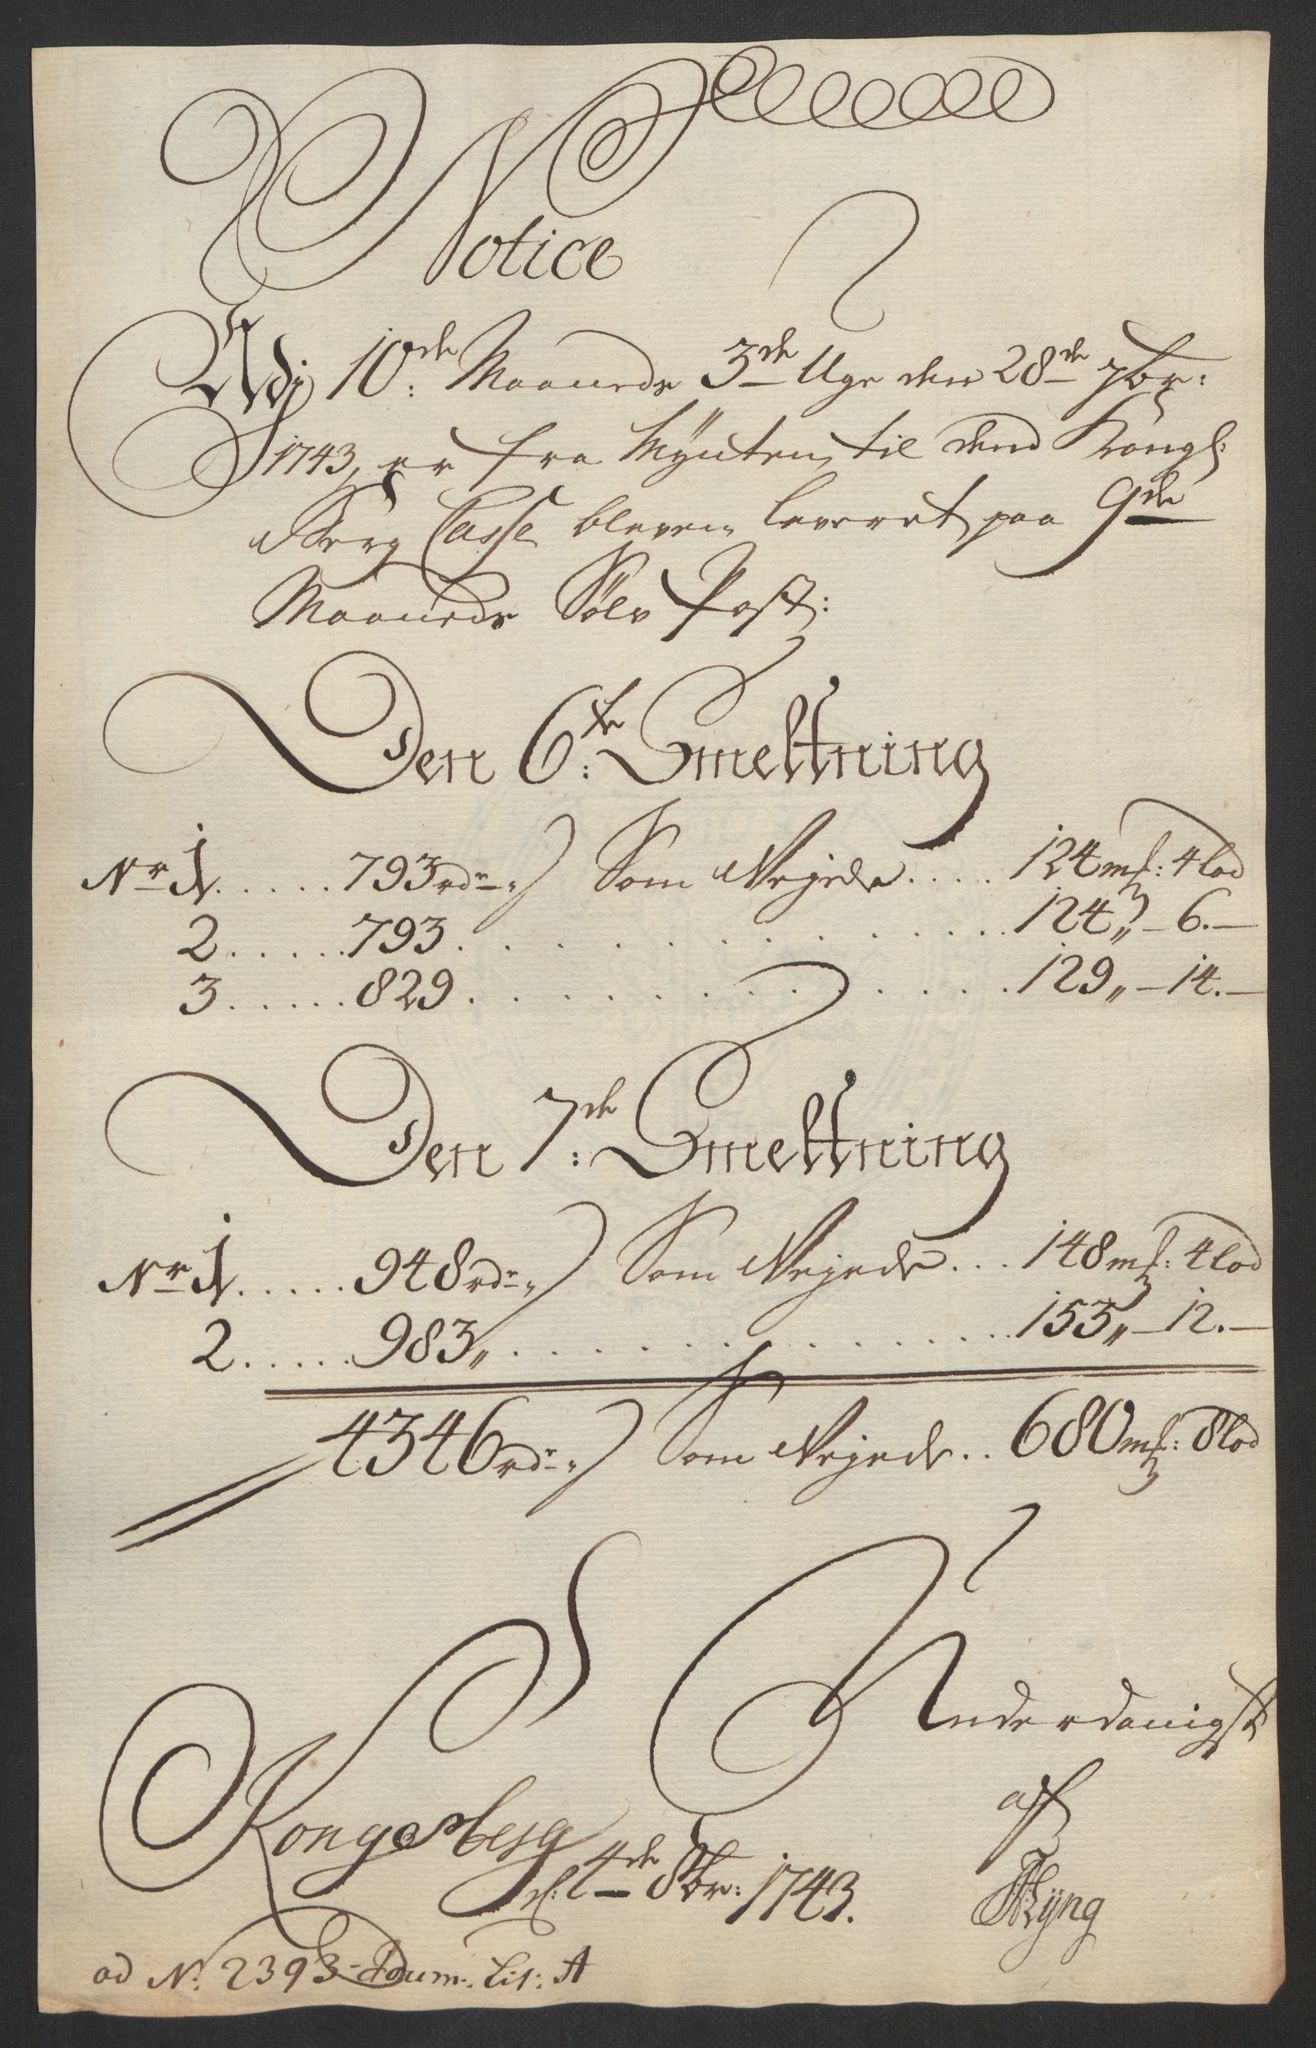 Notice
Adj 10de: Maaneds 3de Uge den 28de 7br:
1743, er fra Mynten til dend Kongl:
Berg Casse bleven leveret paa 9de
Maaneds Sölv Post:
Den 6te: Smeltning
Nr 1. . . . . . 793 rdr„ Som Vejede . . . . . 124 mk: 4 lod
2. . . . . . 793. . . . . . . . . . . . . . . 124„ – 6. –
3. . . . . . 829. . . . . . . . . . . . . . . 129„ – 14. –
Den 7de: Smeltning
Nr 1. . . . . . 948 rdr„ Som Vejede . . . 148 mk: 4 lod
2. . . . . . 983„ . . . . . . . . . . . . . . 153„ – 12. –
4346 rdr„ Som Vejede . . 680 mk: 8 lod
Underdanigst
af
Kongsberg
d: 4de 8br: 1743.
ad No. 2393 Lit: A